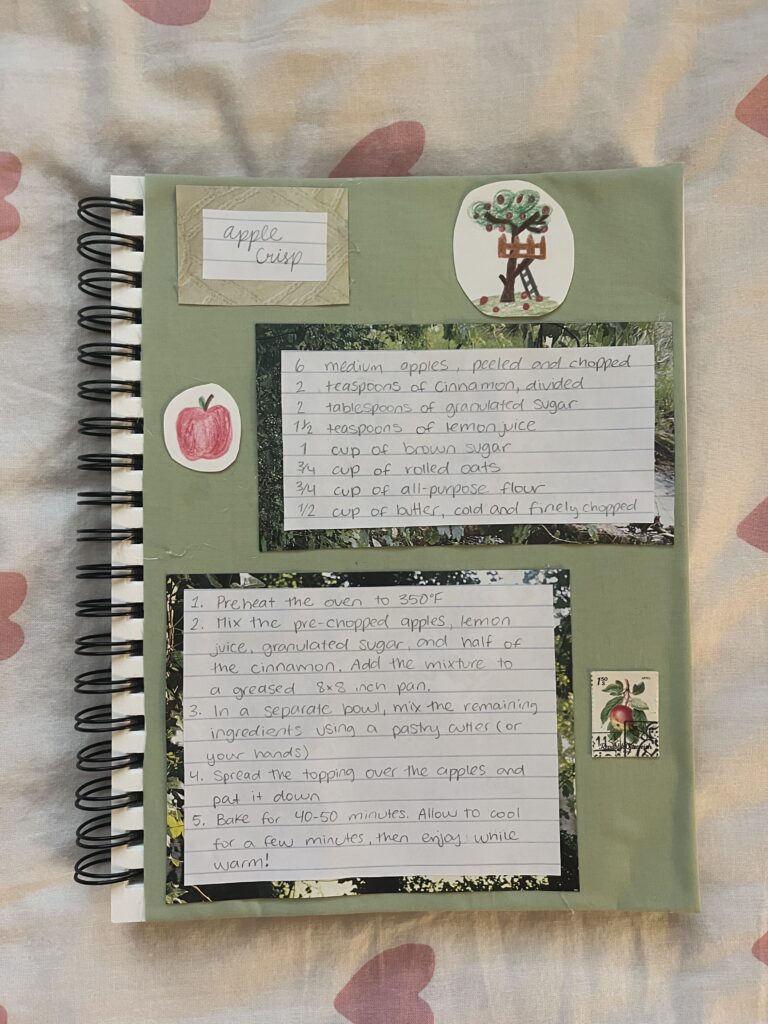 apple
crisp
6 medium apples, peeled and chopped
2 teaspoons of cinnamon, divided
2 tablespoons of granulated sugar
1 1/2 teaspoons of lemon juice
1 cup of brown sugar
3/4 cup of rolled oats
3/4 cup of all-purpose flour
1/2 cup of butter, cold and finely chopped
1. Preheat the oven to 350°F
2. Mix the pre-chopped apples, lemon
juice, granulated sugar, and half of
the cinnamon. Add the mixture to
a greased 8x8 inch pan.
3. In a separate bowl, mix the remaining
ingredients using a pastry cutter (or
your hands)
4. Spread the topping over the apples and
pat it down
5. Bake for 40-50 minutes. Allow to cool
for a few minutes, then enjoy while
warm!